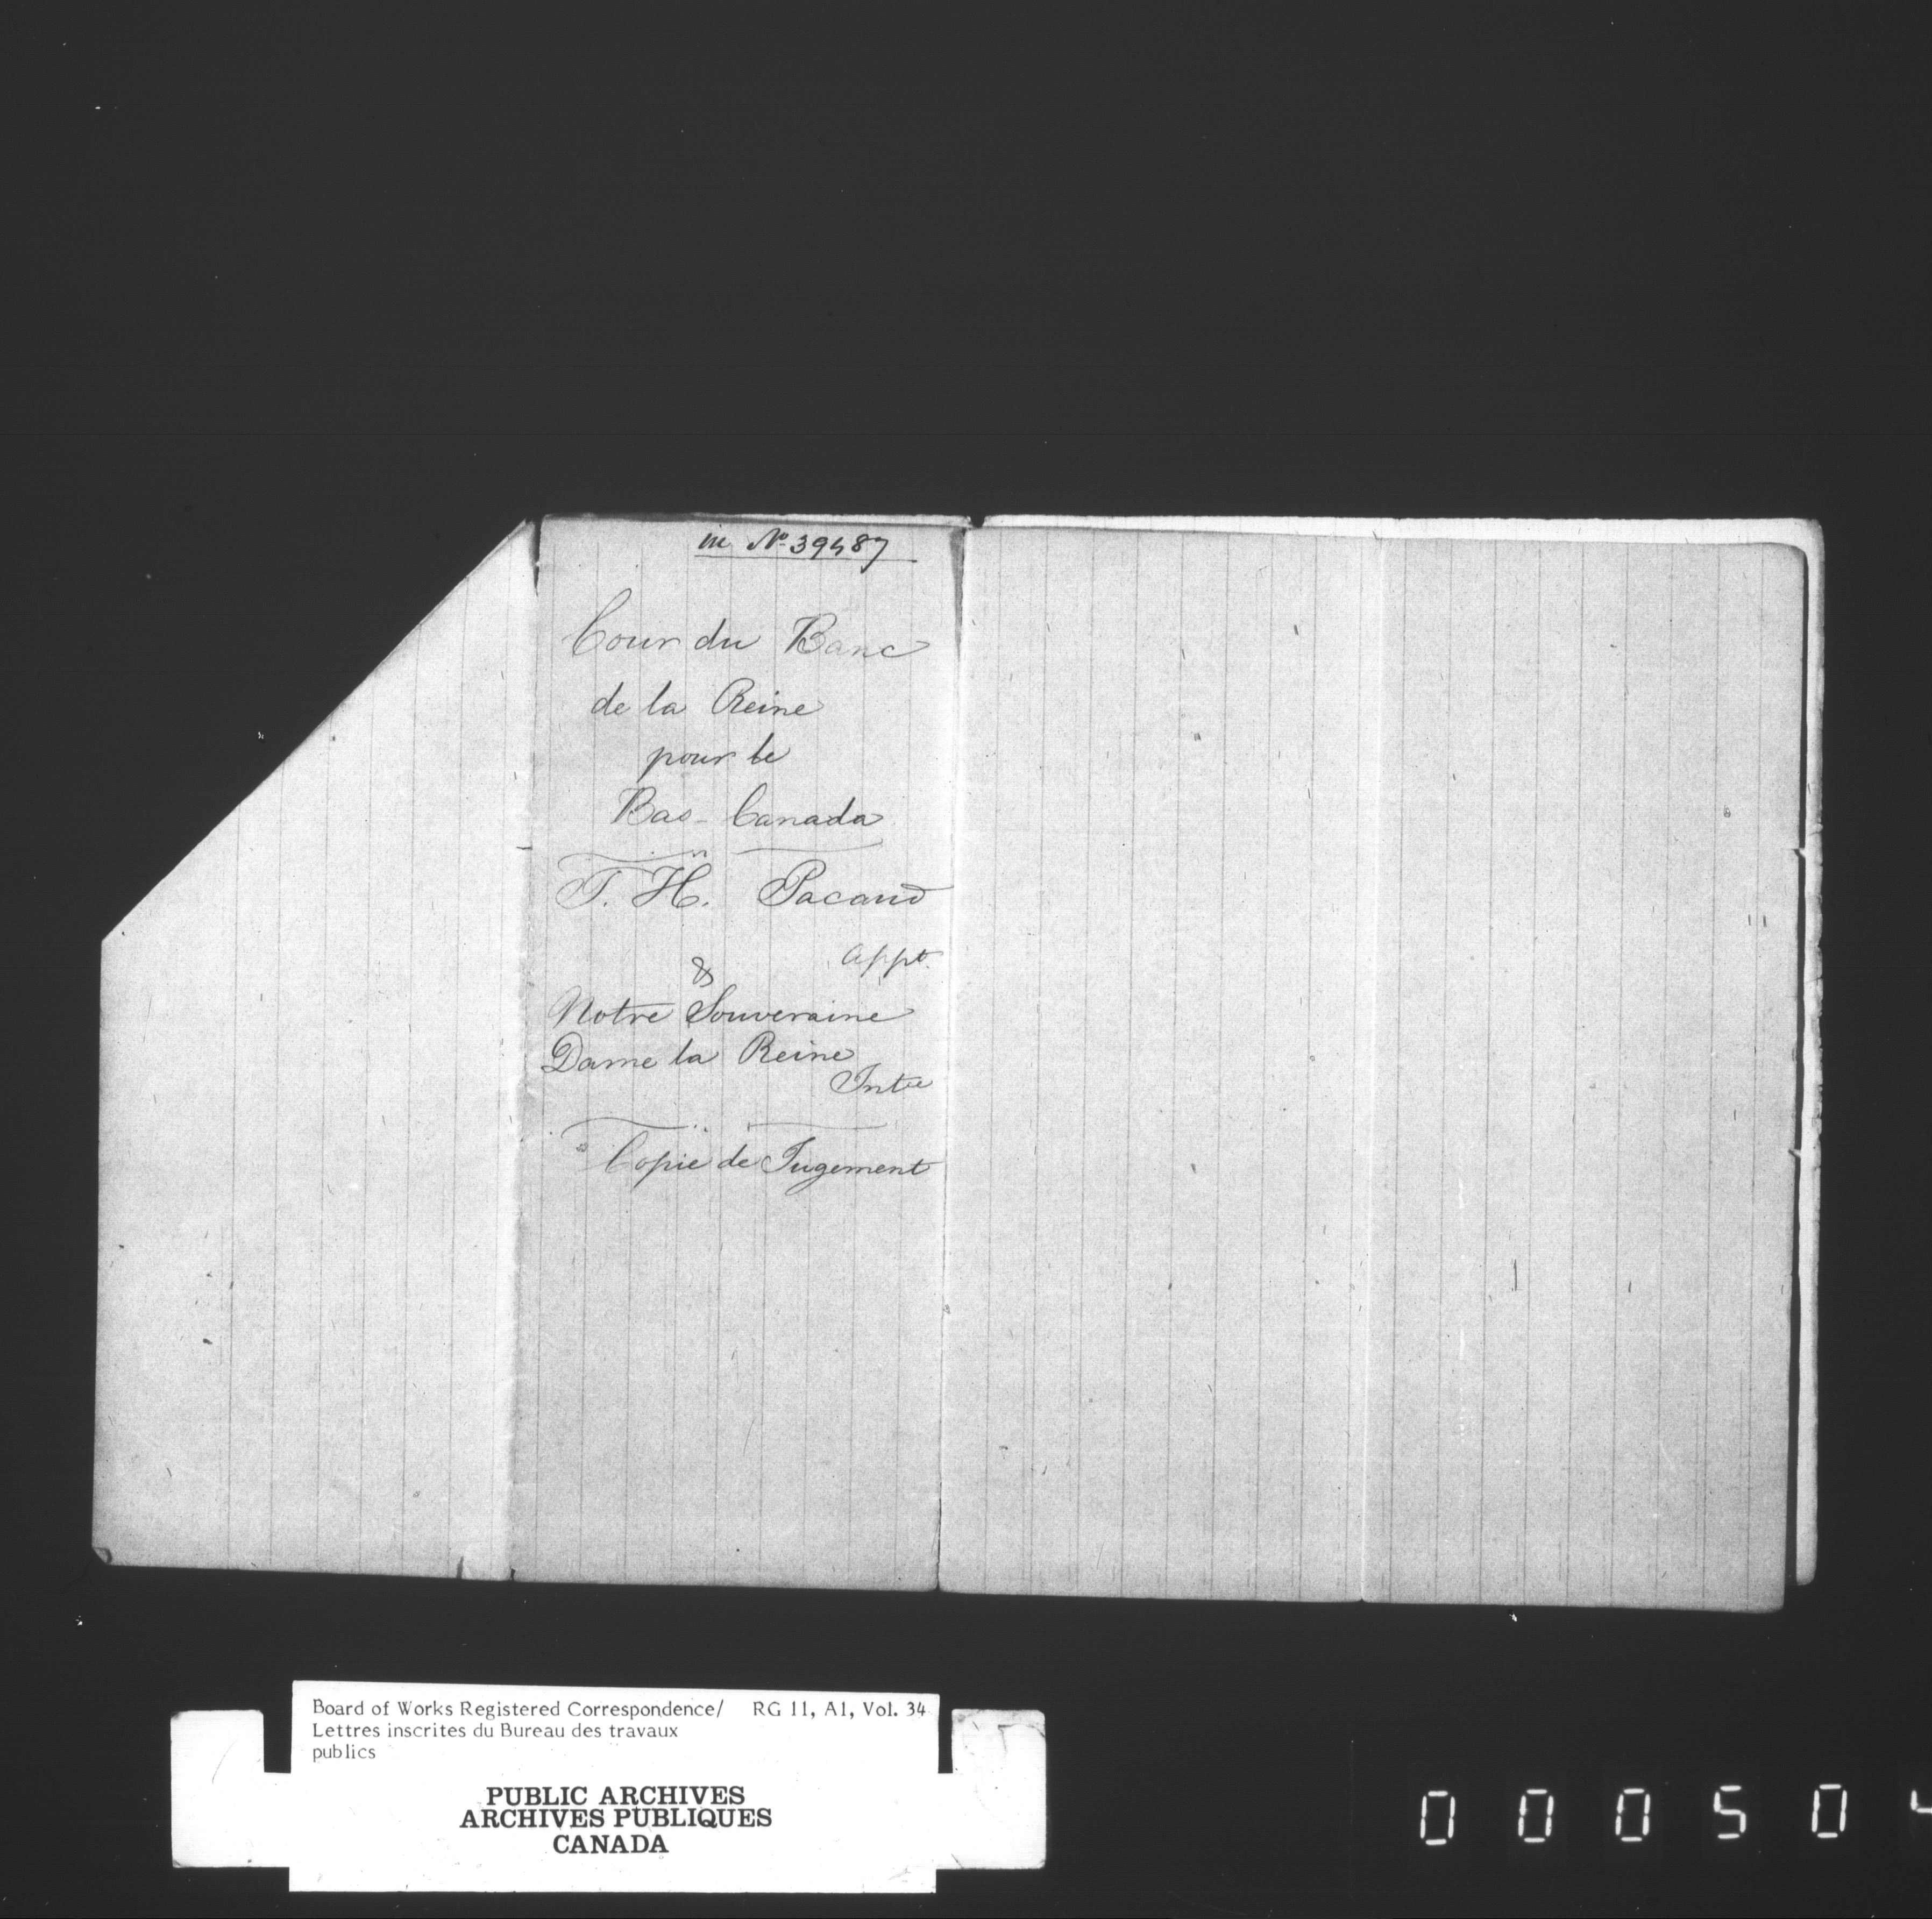 in No 39487
Cour du Banc
de la Reine
pour le
Bas-Canada
P. H. Pacaud
Appt.
&
Notre Souveraine
Dame la Reine
Intée
Copie de Jugement
Board of Works Registered Correspondence/ RG 11, A1, Vol. 34
Lettres inscrites du Bureau des travaux
publics
PUBLIC ARCHIVES
ARCHIVES PUBLIQUES
CANADA
00050